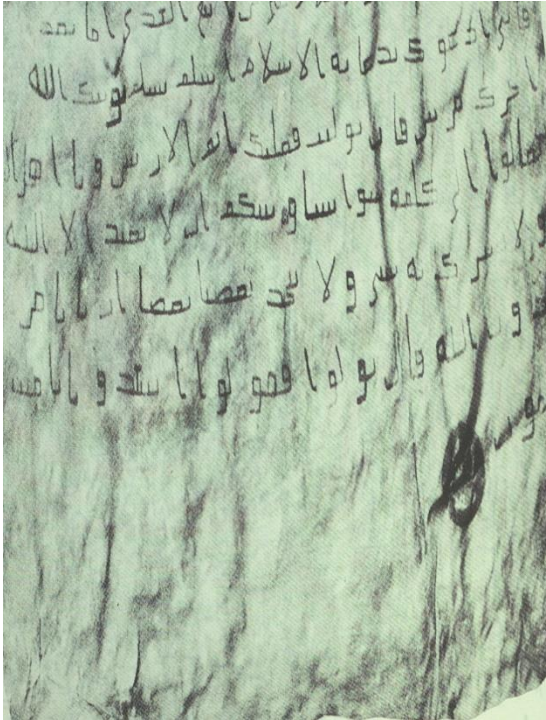 الهدى اما بعد
فانى ادعوك بدعايه الاسلام اسلم تسلم يوتك الله
اجرك مرتين فان توليت فعليك اثم الاريسين ويا اهل
تعالوا الى كلمه سوا بيننا وبينكم ان لا نعبد الا الله
ولا نشرك به شيا ولا يتخذ بعضنا بعضا اربابا من
دون الله فان تولوا فقولوا اشهدوا بانا مس
لمون